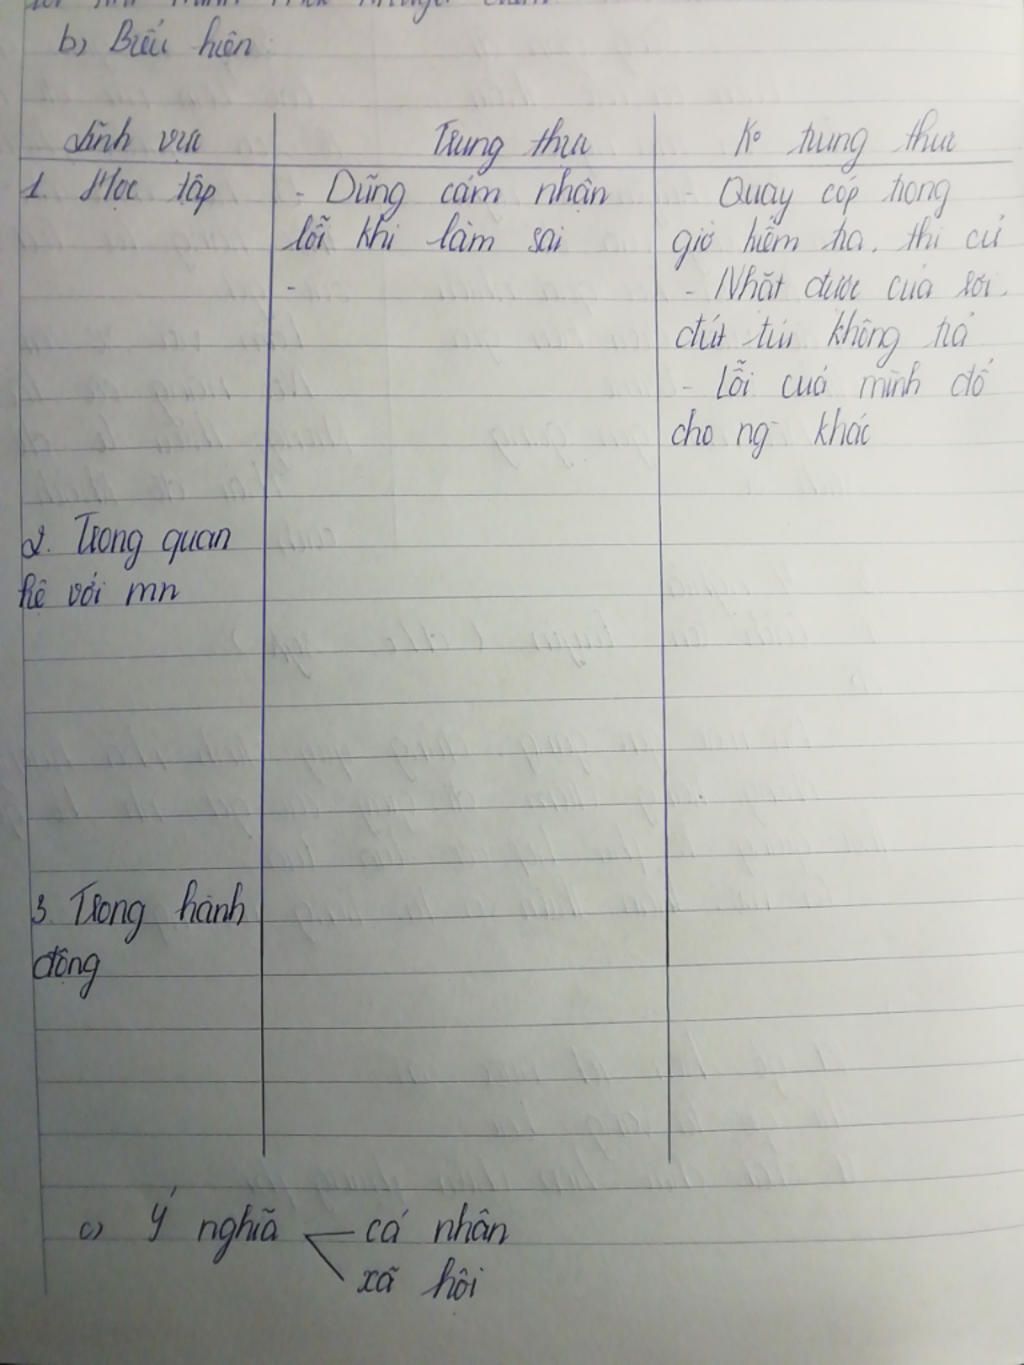 b) Biểu hiện:
Lĩnh vực
Trung thực
Ko trung thực
1. Học tập
- Dũng cảm nhận
lỗi khi làm sai
-
- Quay cóp trong
giờ kiểm tra, thi cử
- Nhặt được của rơi,
đút túi không trả
- Lỗi của mình đổ
cho ng khác
2. Trong quan
hệ với mn
3. Trong hành
động
c) Ý nghĩa
cá nhân
xã hội